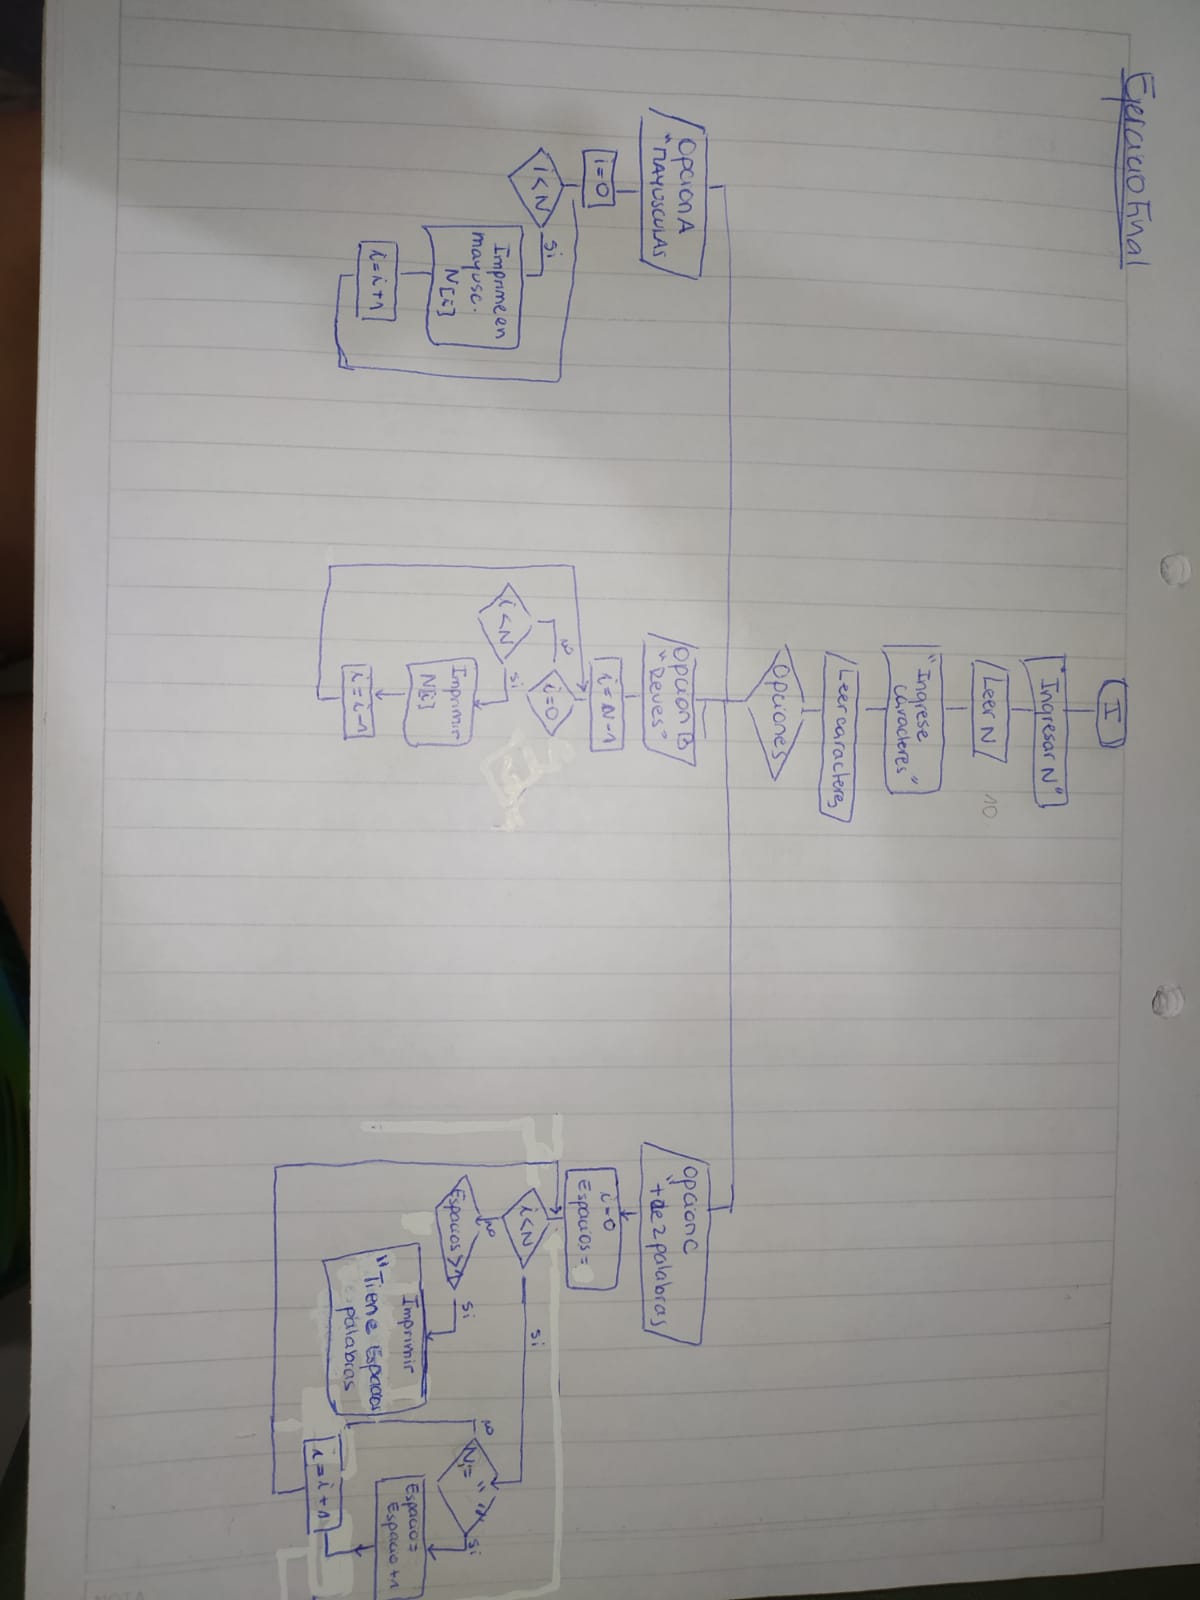 Ejercicio Final
I
"Ingresar N"
Leer N
10
"Ingrese
caracteres"
Leer caracteres
Opciones
Opcion A
"MAYUSCULAS
i=0
i<N
si
Imprime en
mayusc.
N[i]
i=i+1
Opcion B
"Reves"
i=N-1
i=0
no
i<N
si
Imprimir
N[i]
i=i-1
Opcion C
"+de 2 palabras
i=0
Espacios=
i<N
si
no
Espacios>1
si
Imprimir
"Tiene Espacios
palabras
Ni=" "
no
si
Espacio=
Espacio+1
i=i+1
NOTA